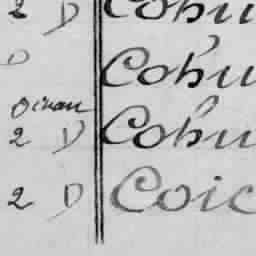 2 D Cohu
D Cohu
Dinan
2 D Cohu
2 D Coic